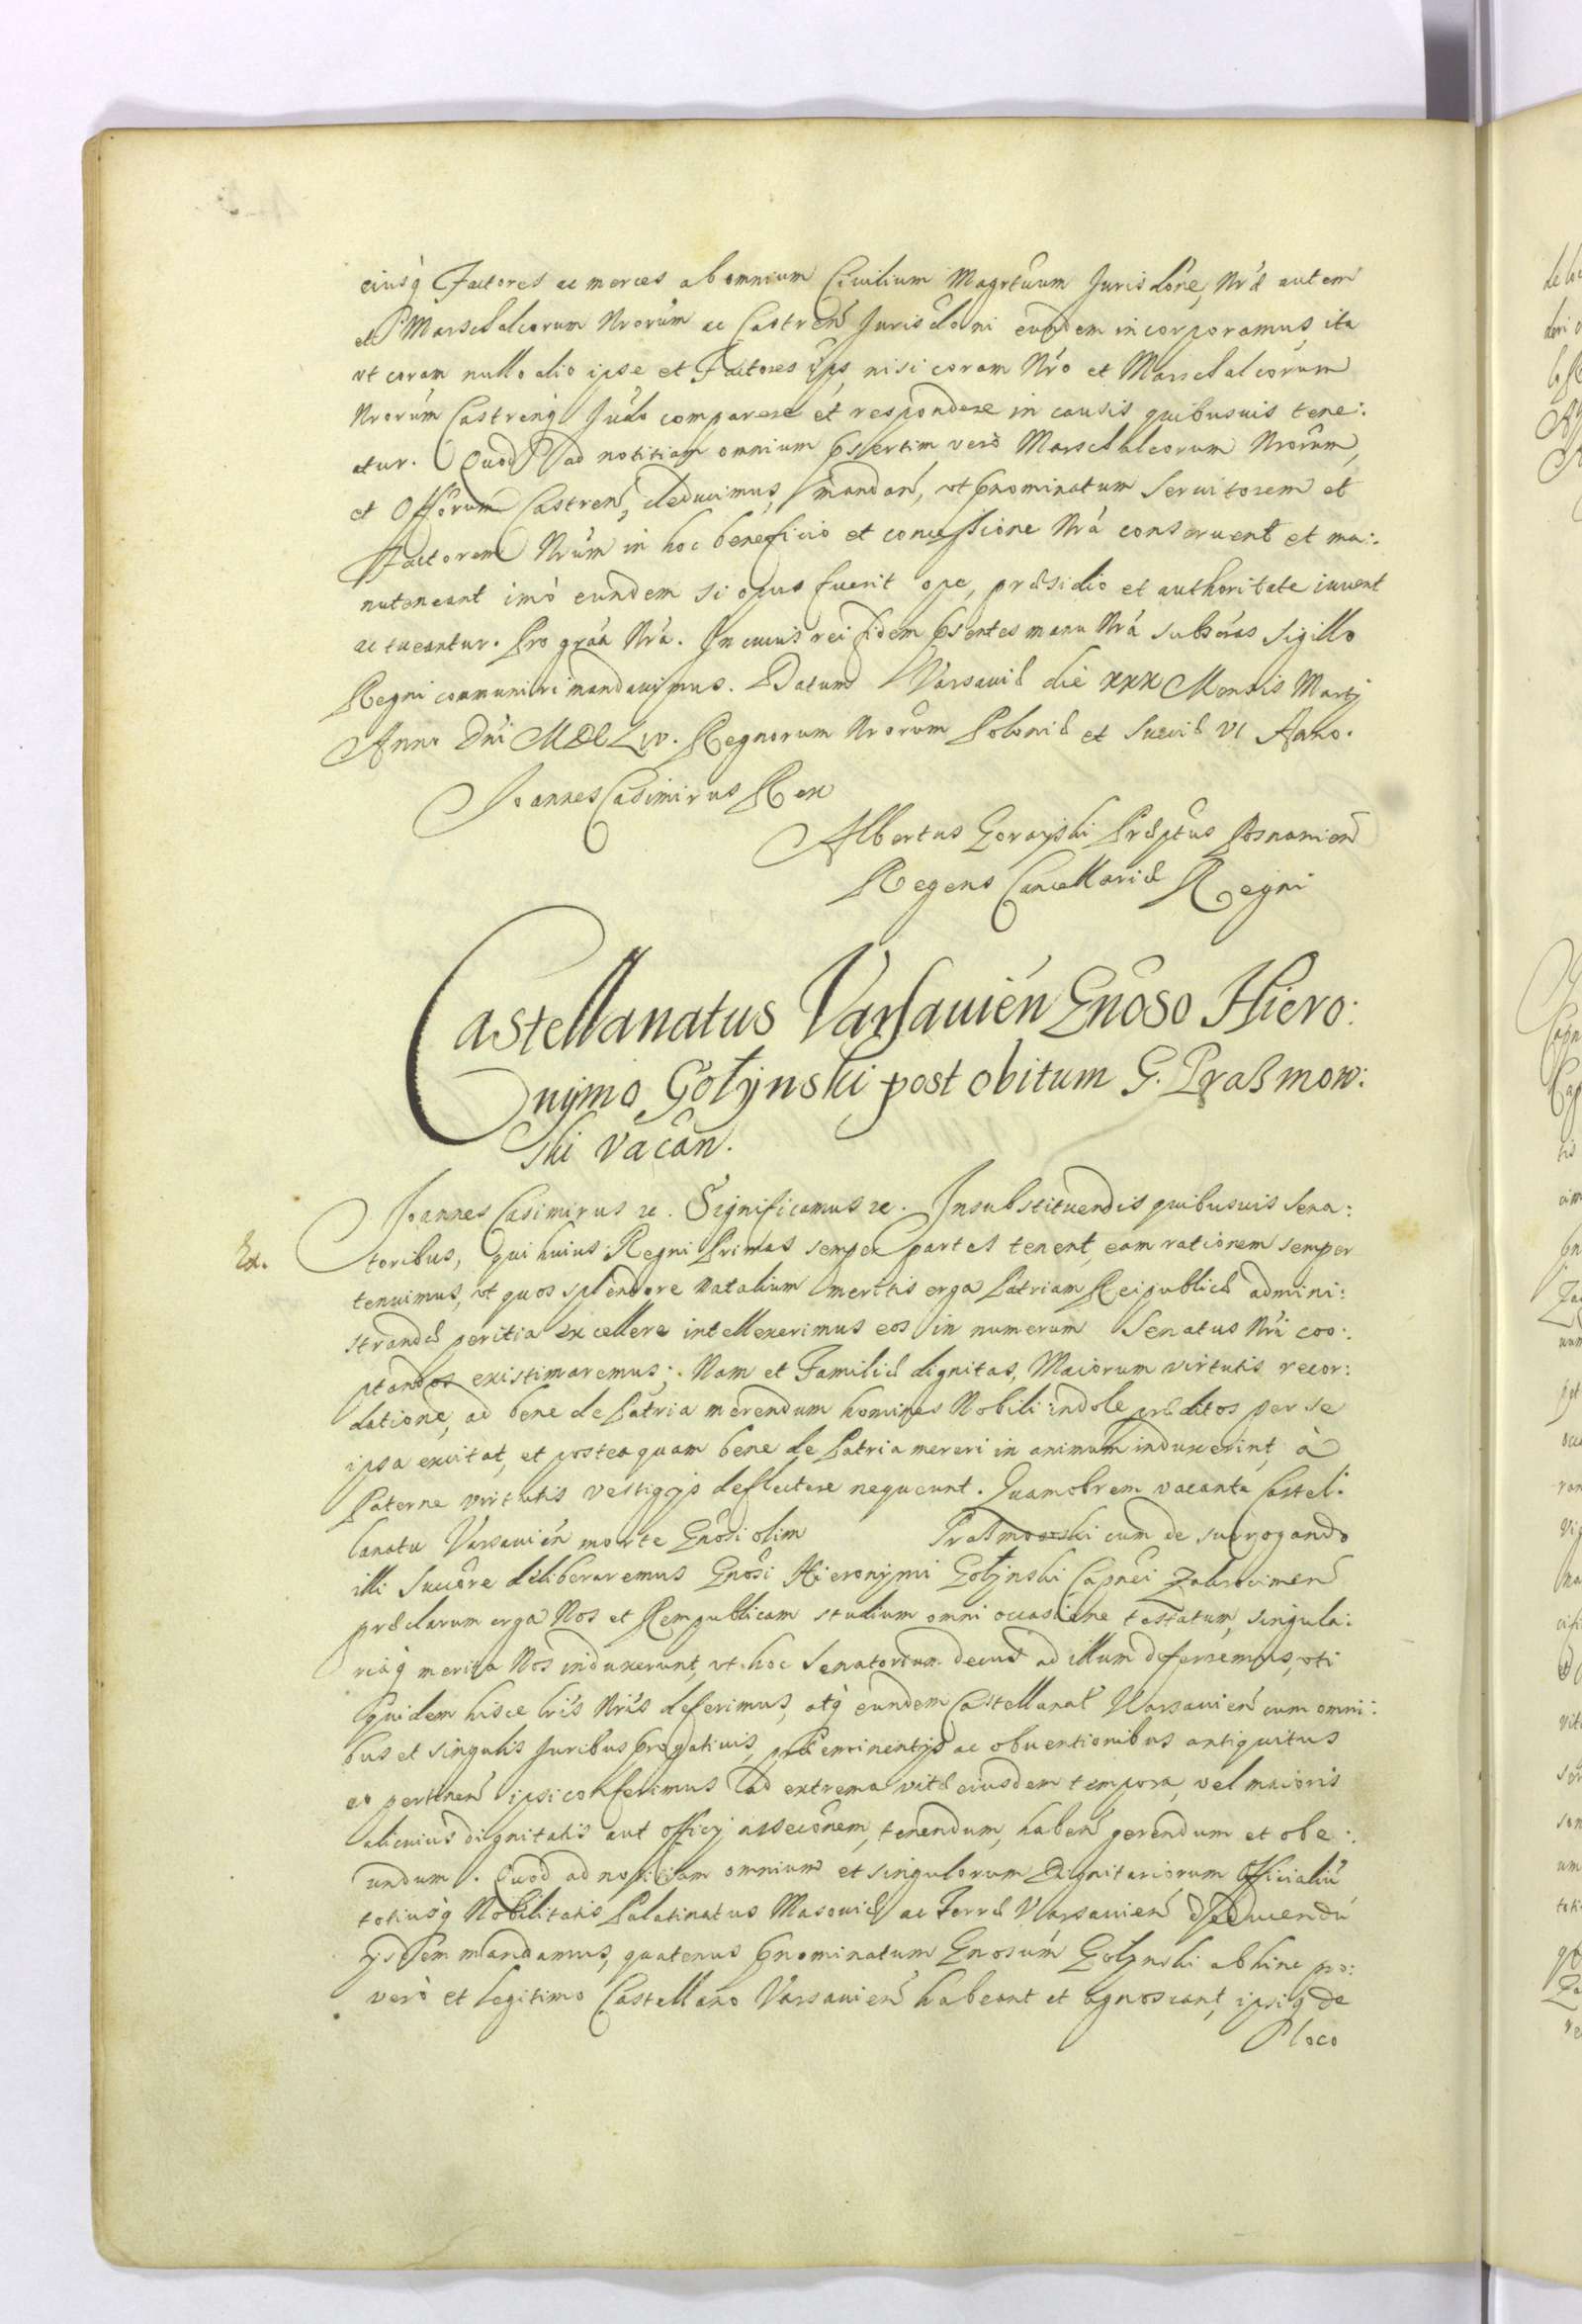 eiusq́ Factores ac merces ab omnium Ciuilium Magrt̃uum Jurisdõne, Nr̃æ autem
et Marschalcorum Nrorũm ac Castreñ Jurisdõni eundem incorporamus, ita
vt coram nullo alio ipse et Factores ips̃, nisi coram Nr̃o et Marschalcorum
Nrorũm Castrenq́ Jud̃o comparere et respondere in causis quibusuis tene:
atur. Quod ad notitiam omnium p̃sertim verò Marschalcorum Nrorũm,
et Offõrum Castreñ, deducimus, mandañ, vt p̃nominatum Seruitorem et
Factorem Nrũm in hoc beneficio et concessione Nr̃a conseruent et ma:
nuteneant imò eundem si opus fuerit ope, præsidio et authoritate iuuent
ac tueantur. Pro grãa Nr̃a. In cuius rei fidem p̃sentes manu Nr̃a subscr̃as Sigillo
Regni communiri mandauimus. Datum Varsauiæ die XXX Mensis Martij
Anno Dñi MDCLIV. Regnorum Nrorũm Poloniæ et Sueciæ VI Anno.
Joannes Casimirus Rex
Albertus Gorayski Præp̃tus Posnanieñ
Regens Cancellariæ Regni
Castellanatus Varsauień Gñoso Hiero:
nymo Gołynski post obitum G. Praßmow:
ski vacañ.
Joannes Casimirus &c. Significamus &c. In substituendis quibusuis Sena:
Ex.
toribus, qui huius Regni Primas semper partes tenent, eam rationem semper
tenuimus, vt quos splendore natalium meritis erga Patriam Reipublicæ admini:
strandæ peritia excellere intellexerimus eos in numerum Senatus Nr̃i coo:
ptandos existimaremus; Nam et Familiæ dignitas, Maiorum virtutis recor:
datione, ad bene de Patria merendum homines Nobili indole præditos per se
ipsa excitat, et posteaquam bene de Patria mereri in animum induxerint, à
Paterne virtutis vestigijs deflectere nequeunt. Quamobrem vacante Castel:
lanatu Varsauień morte Gñosi olim Praßmowski cum de surrogando
illi Succõre deliberaremus Gñosi Hieronymi Gołynski Capñei Zakrocimeñ
præclarum erga Nos et Rempublicam studium omni occasione testatum, singula:
riaq́ merita Nos induxerunt, vt hoc Senatorium decus ad illum deferremus, vti
quidem hisce lr̃is Nr̃is deferimus, atq́ eundem Castellanat̃ Varsauień cum omni:
bus et singulis Juribus p̃rogatiuis, præeminentijs ac obuentionibus antiquitus
eo pertineñ ipsi conferimus ad extrema vitæ eiusdem tempora, vel maioris
alicuius dignitatis aut officij assecõnem, tenendum, habeñ gerendum et obe:
undum. Quod ad notitiam omnium et singulorum Dignitariorum Officialiũ
totiusq́ Nobilitatis Palatinatus Masouiæ ac Terræ Varsauień deducendũ
ijsdem mandamus, quatenus p̃nominatum Gñosũm Gołynski abhinc pro:
verò et legitimo Castellano Varsauień habeant et agnoscant, ipsiq́ de
loco